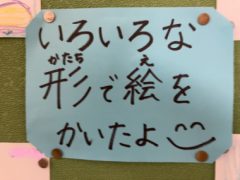 いろいろな
形で絵を
かいたよ
かたち
え